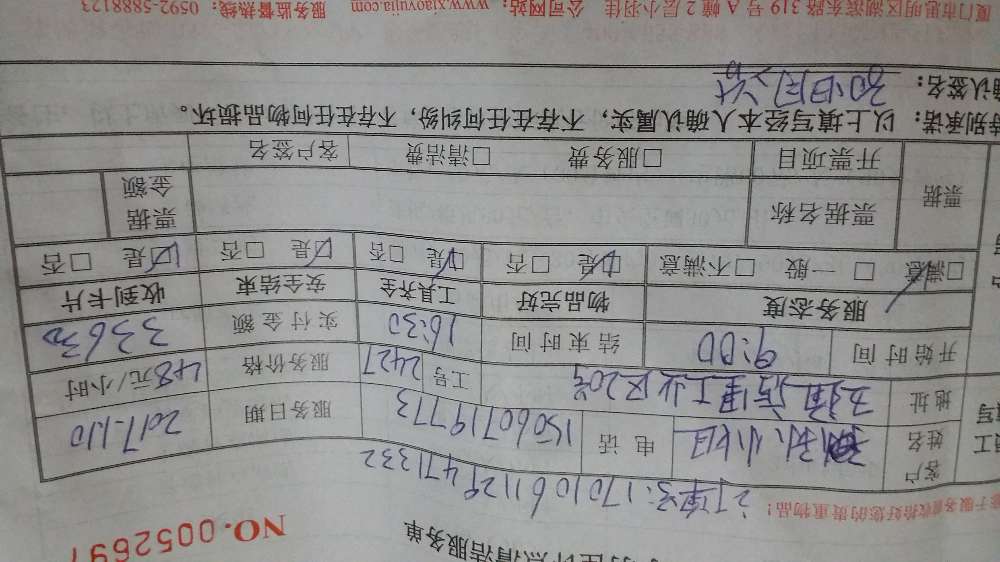 计点清洁服务单
NO.0052697
订单号:1701061129471332
客户姓名 小姐 电话 15060719773 服务日期 2017.1.10
地址 五通店里工业区20号 工号 2427 服务价格 48元/小时
开始时间 9:00 结束时间 16:30 实付金额 336元
服务态度 物品完好 工具齐全 安全结束 收到卡片
□满意 □一般 □不满意 □是 □否 □是 □否 □是 □否 □是 □否
票据 票据名称 票据金额
开票项目 □服务费 □清洁费 客户签名
特别承诺:以上填写经本人确认属实,不存在任何纠纷,不存在任何物品损坏。
确认签名:
厦门市思明区湖滨东路319号A幢2层小羽佳 公司网站:www.xiaoyujia.com 服务监督热线:0592-5888123